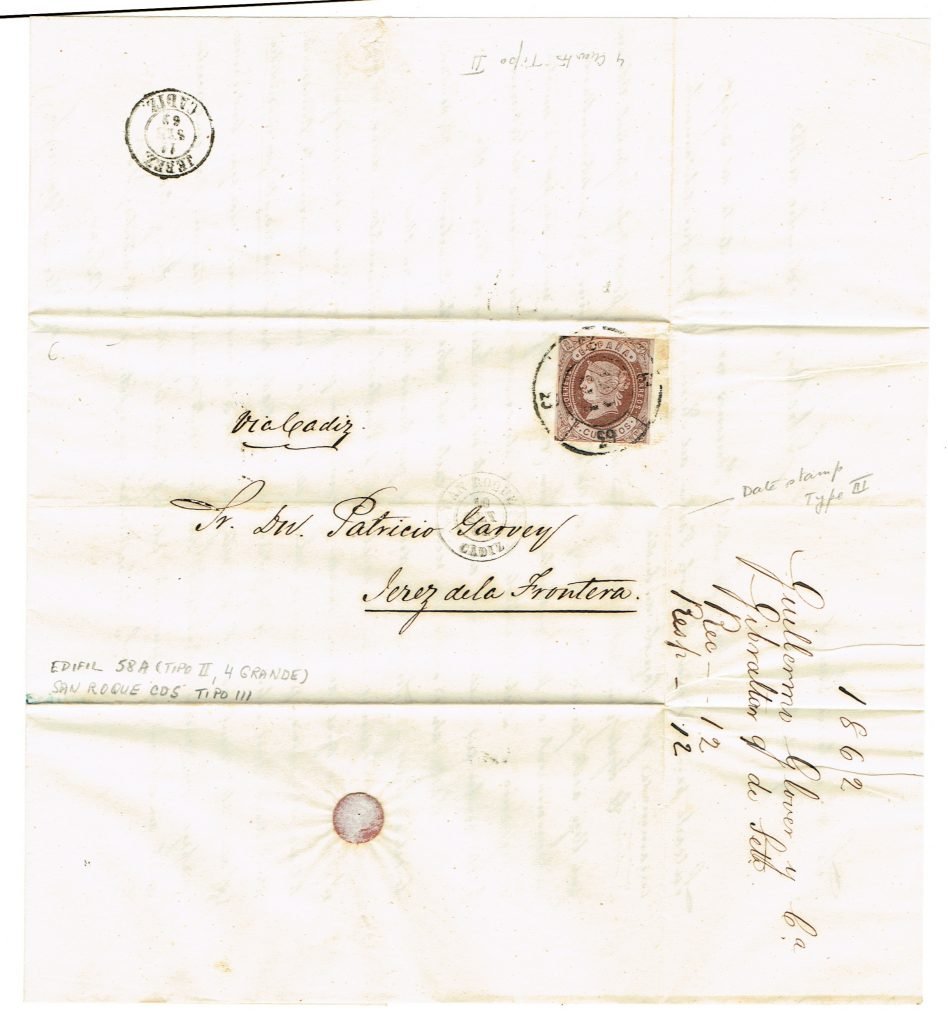 4 Cuartos Tipo II
JEREZ
11
SET
62
CADIZ
ESPAÑA
CORREOS
CORREOS
CUARTOS
62
Via Cadiz.
SAN ROQUE
10
CADIZ
Sr. Dn. Patricio Garvey
Jerez de la Frontera.
Date stamp
Type III
EDIFIL 58A (TIPO II, 4 GRANDE)
SAN ROQUE CDS TIPO III
1862
Guillermo Glover y Ca
Gibraltar 9 de Set
Rec - 12
Resp - 12